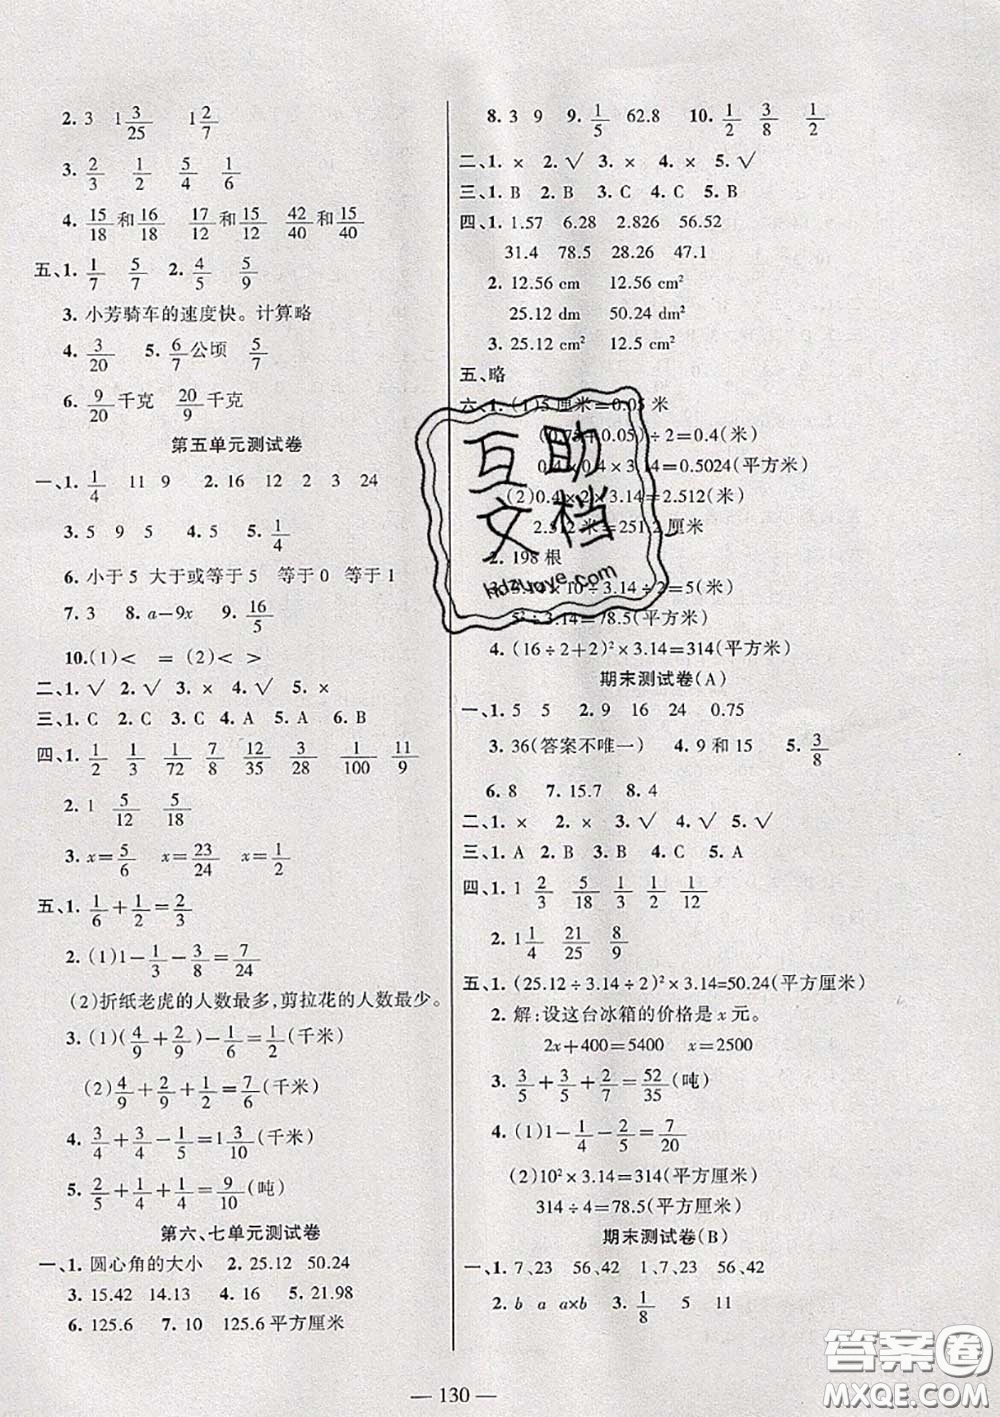 2. 3 1 3/25 1 2/7
3. 2/3 1/2 5/4 1/6
4. 15/18和16/18 17/12和15/12 42/40和15/40
五、1. 1/7 5/7 2. 4/5 5/9
3. 小芳骑车的速度快。计算略
4. 3/20 5. 6/7公顷 5/7
6. 9/20千克 20/9千克
第五单元测试卷
一、1. 1/4 11 9 2. 16 12 2 3 24
3. 5 9 5 4. 5 5. 1/4
6. 小于5 大于或等于5 等于0 等于1
7. 3 8. a−9x 9. 16/5
10. (1)< = (2)< >
二、1. √ 2. √ 3. × 4. √ 5. ×
三、1. C 2. C 3. C 4. A 5. A 6. B
四、1. 1/2 1/3 1/72 7/8 12/35 3/28 1/100 11/9
2. 1 5/12 5/18
3. x=5/6 x=23/24 x=1/2
五、1. 1/6+1/2=2/3
2. (1)1−1/3−3/8=7/24
(2)折纸老虎的人数最多,剪拉花的人数最少。
3. (1)(4/9+2/9)−1/6=1/2(千米)
(2)4/9+2/9+1/2=7/6(千米)
4. 3/4+3/4−1/5=1 3/10(千米)
5. 2/5+1/4+1/4=9/10(吨)
第六、七单元测试卷
一、1. 圆心角的大小 2. 25.12 50.24
3. 15.42 14.13 4. 16 5. 21.98
6. 125.6 7. 10 125.6平方厘米
8. 3 9 9. 1/5 62.8 10. 1/2 3/8 1/2
二、1. × 2. √ 3. × 4. × 5. √
三、1. B 2. B 3. C 4. C 5. B
四、1. 1.57 6.28 2.826 56.52
31.4 78.5 28.26 47.1
2. 12.56 cm 12.56 cm²
25.12 dm 50.24 dm²
3. 25.12 cm² 12.5 cm²
五、略
六、1. (1)5厘米=0.05米
(0.75+0.05)÷2=0.4(米)
0.4×0.4×3.14=0.5024(平方米)
(2)0.4×2×3.14=2.512(米)
2.512米=251.2厘米
2. 198根
3.14×10÷3.14÷2=5(米)
5²×3.14=78.5(平方米)
4. (16÷2+2)²×3.14=314(平方米)
期末测试卷(A)
一、1. 5 5 2. 9 16 24 0.75
3. 36(答案不唯一) 4. 9和15 5. 3/8
6. 8 7. 15.7 8. 4
二、1. × 2. × 3. √ 4. √ 5. √
三、1. A 2. B 3. B 4. C 5. A
四、1. 1 2/3 5/18 1/3 1/2 1/12
2. 1 1/4 21/25 8/9
五、1. (25.12÷3.14÷2)²×3.14=50.24(平方厘米)
2. 解:设这台冰箱的价格是x元。
2x+400=5400 x=2500
3. 3/5+3/5+2/7=52/35(吨)
4. (1)1−1/4−2/5=7/20
(2)10²×3.14=314(平方厘米)
314÷4=78.5(平方厘米)
期末测试卷(B)
一、1. 7、23 56、42 1、7、23 56、42
2. b a a×b 3. 1/8 5 11
130
互助
文档
hdzuoye.com
答案圈
MXQE.COM